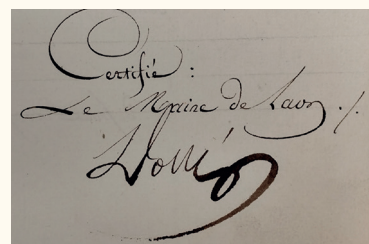 Certifié :
Le Maire de Laon ./.